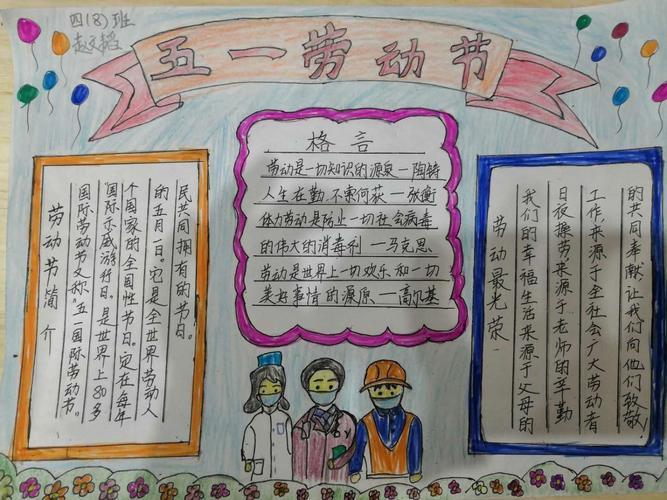 四(8)班
赵文韬
五一劳动节
劳动节简介
国际劳动节又称"五一国际劳动节。
国际示威游行日。是世界上80多
个国家的全国性节日。定在每年
的五月一日。它是全世界劳动人
民共同拥有的节日。
格言
劳动是一切知识的源泉—陶铸
人生在勤,不索何获—张衡
体力劳动是防止一切社会病毒
的伟大的消毒剂—马克思
劳动是世界上一切欢乐和一切
美好事情的源泉—高尔基
劳动最光荣
我们的幸福生活来源于父母的
日夜操劳来源于老师的辛勤
工作,来源于全社会广大劳动者
的共同奉献让我们向他们致敬